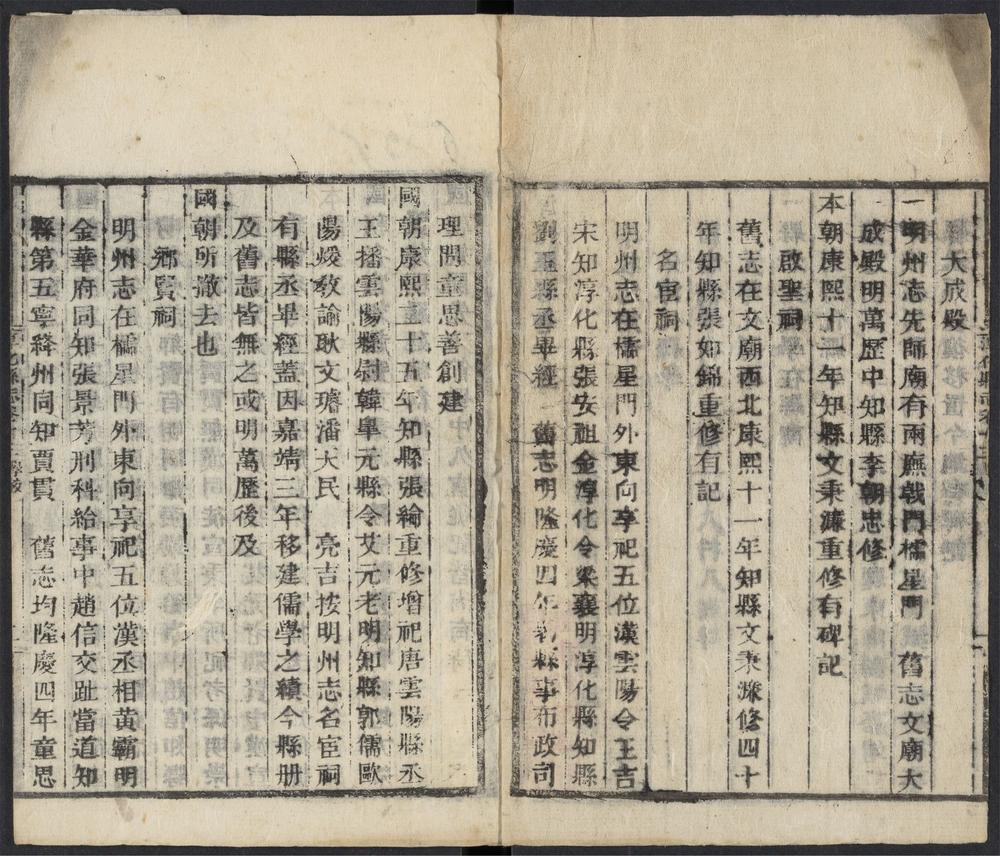 大成殿
明州志先師廟有兩廡戟門欞星門　舊志文廟大
成殿明萬歷中知縣李朝忠修
本朝康熙十一年知縣文秉濂重修有碑記
啟聖祠
舊志在文廟西北康熙十一年知縣文秉濂修四十
年知縣張如錦重修有記
名宦祠
明州志在欞星門外東向享祀五位漢雲陽令王吉
宋知淳化縣張安祖金淳化令梁襄明淳化縣知縣
劉玉縣丞畢經　舊志明隆慶四年縣事布政司
理問童思善創建
國朝康熙三十五年知縣張綸重修增祀唐雲陽縣丞
王播雲陽縣尉韓畢元縣令艾元老明知縣郭儒歐
陽煖教諭耿文璿潘大民　亮吉按明州志名宦祠
有縣丞畢經蓋因嘉靖三年移建儒學之績今縣册
及舊志皆無之或明萬歷後及
國朝所澈去也
鄉賢祠
明州志在欞星門外東向享祀五位漢丞相黄霸明
金華府同知張景芳刑科給事中趙信交趾當道知
縣第五寧絳州同知賈貫　舊志均隆慶四年童思